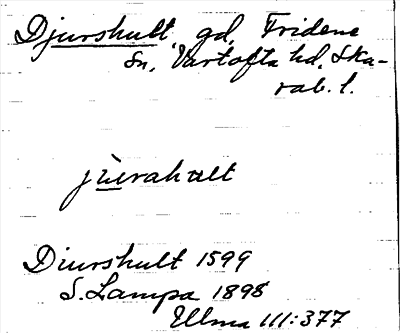 Djurshult, gd, Fridene
sn, Vartofta hd, Ska-
rab. l.
jùrahult
Diurshult 1599
S. Lampa 1898
Ullma 111:377